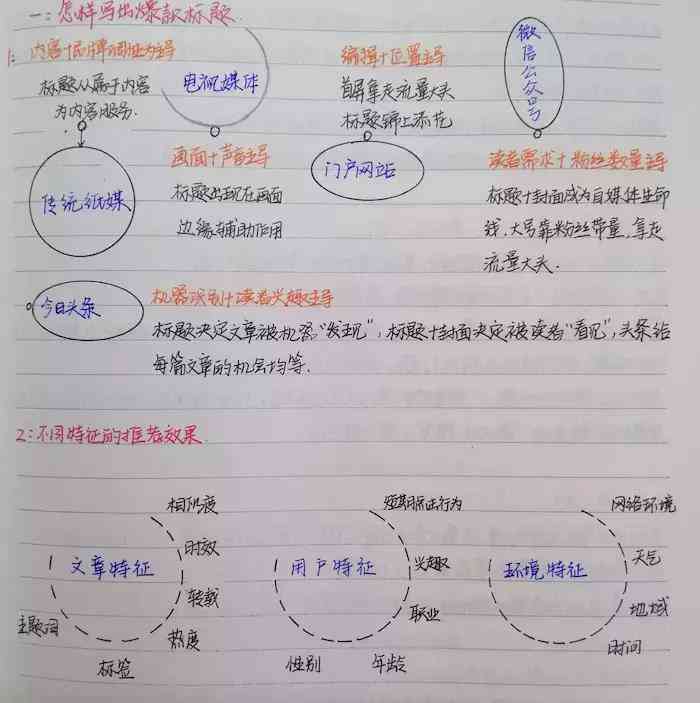 一：怎样写出爆款标题.
1: 内容+品牌调性为主导
标题从属于内容
为内容服务.
传统纸媒
电视媒体
画面+声音主导
标题出现在画面
边缘辅助作用
编辑+位置主导
首屏拿走流量大头
标题锦上添花
门户网站
微信公众号
读者需求+粉丝数量主导
标题+封面成为自媒体生命
线，大号靠粉丝带量，拿走
流量大头.
今日头条
机器识别+读者兴趣主导
标题决定文章被机器“发现”，标题+封面决定被读者“看见”，头条给
每篇文章的机会均等.
2:不同特征的推荐效果.
文章特征
相似度
时效
转载
热度
标签
主题词
用户特征
短期点击行为
兴趣
职业
年龄
性别
环境特征
网络环境
天气
地域
时间